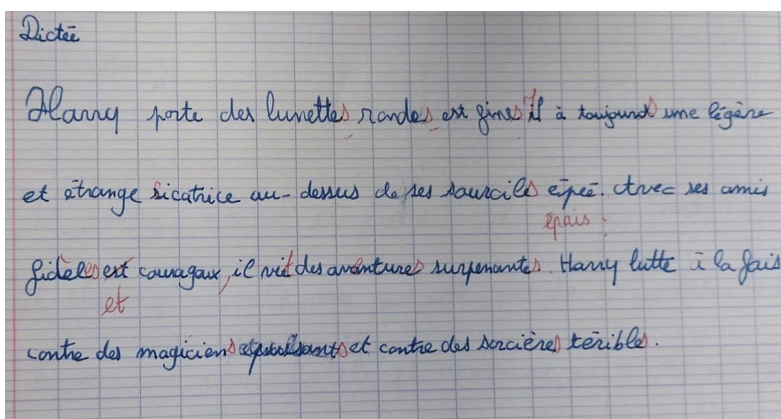 Dictée
Harry porte des lunettes rondes est fines il à toujours une légère
et étrange sicatrice au-dessus de ses sourcils épée. Avec ses amis
épais.
fidèles est couragaux, il vit des aventures surpenantes. Harry lutte à la fois
et
contre des magiciens et contre des sorcières téribles.